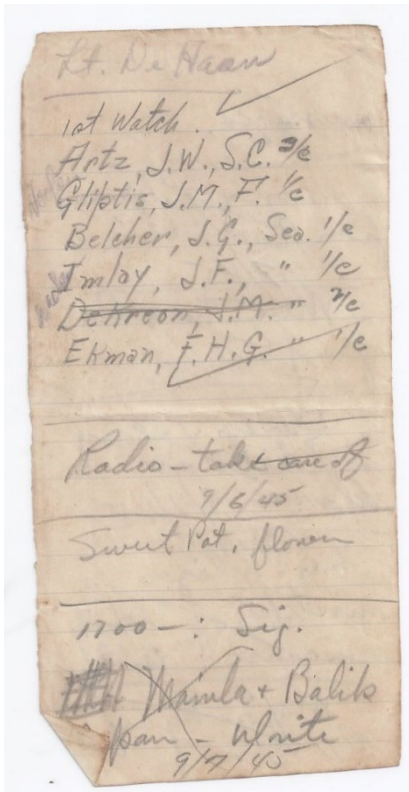 Lt. De Haan
1st Watch.
Artz, J.W., S.C. 3/c
Gliptis, J.M., F. 1/c
Belcher, J.G., Sea. 1/c
Imlay, J.F., " 1/c
DeKreon, J.M. " 2/c
Ekman, F.H.G. " 1/c
Radio - take care of
9/6/45
Sweet Pot. flower
1700 - : Sig.
Manila + Balik
pan - write
9/7/45